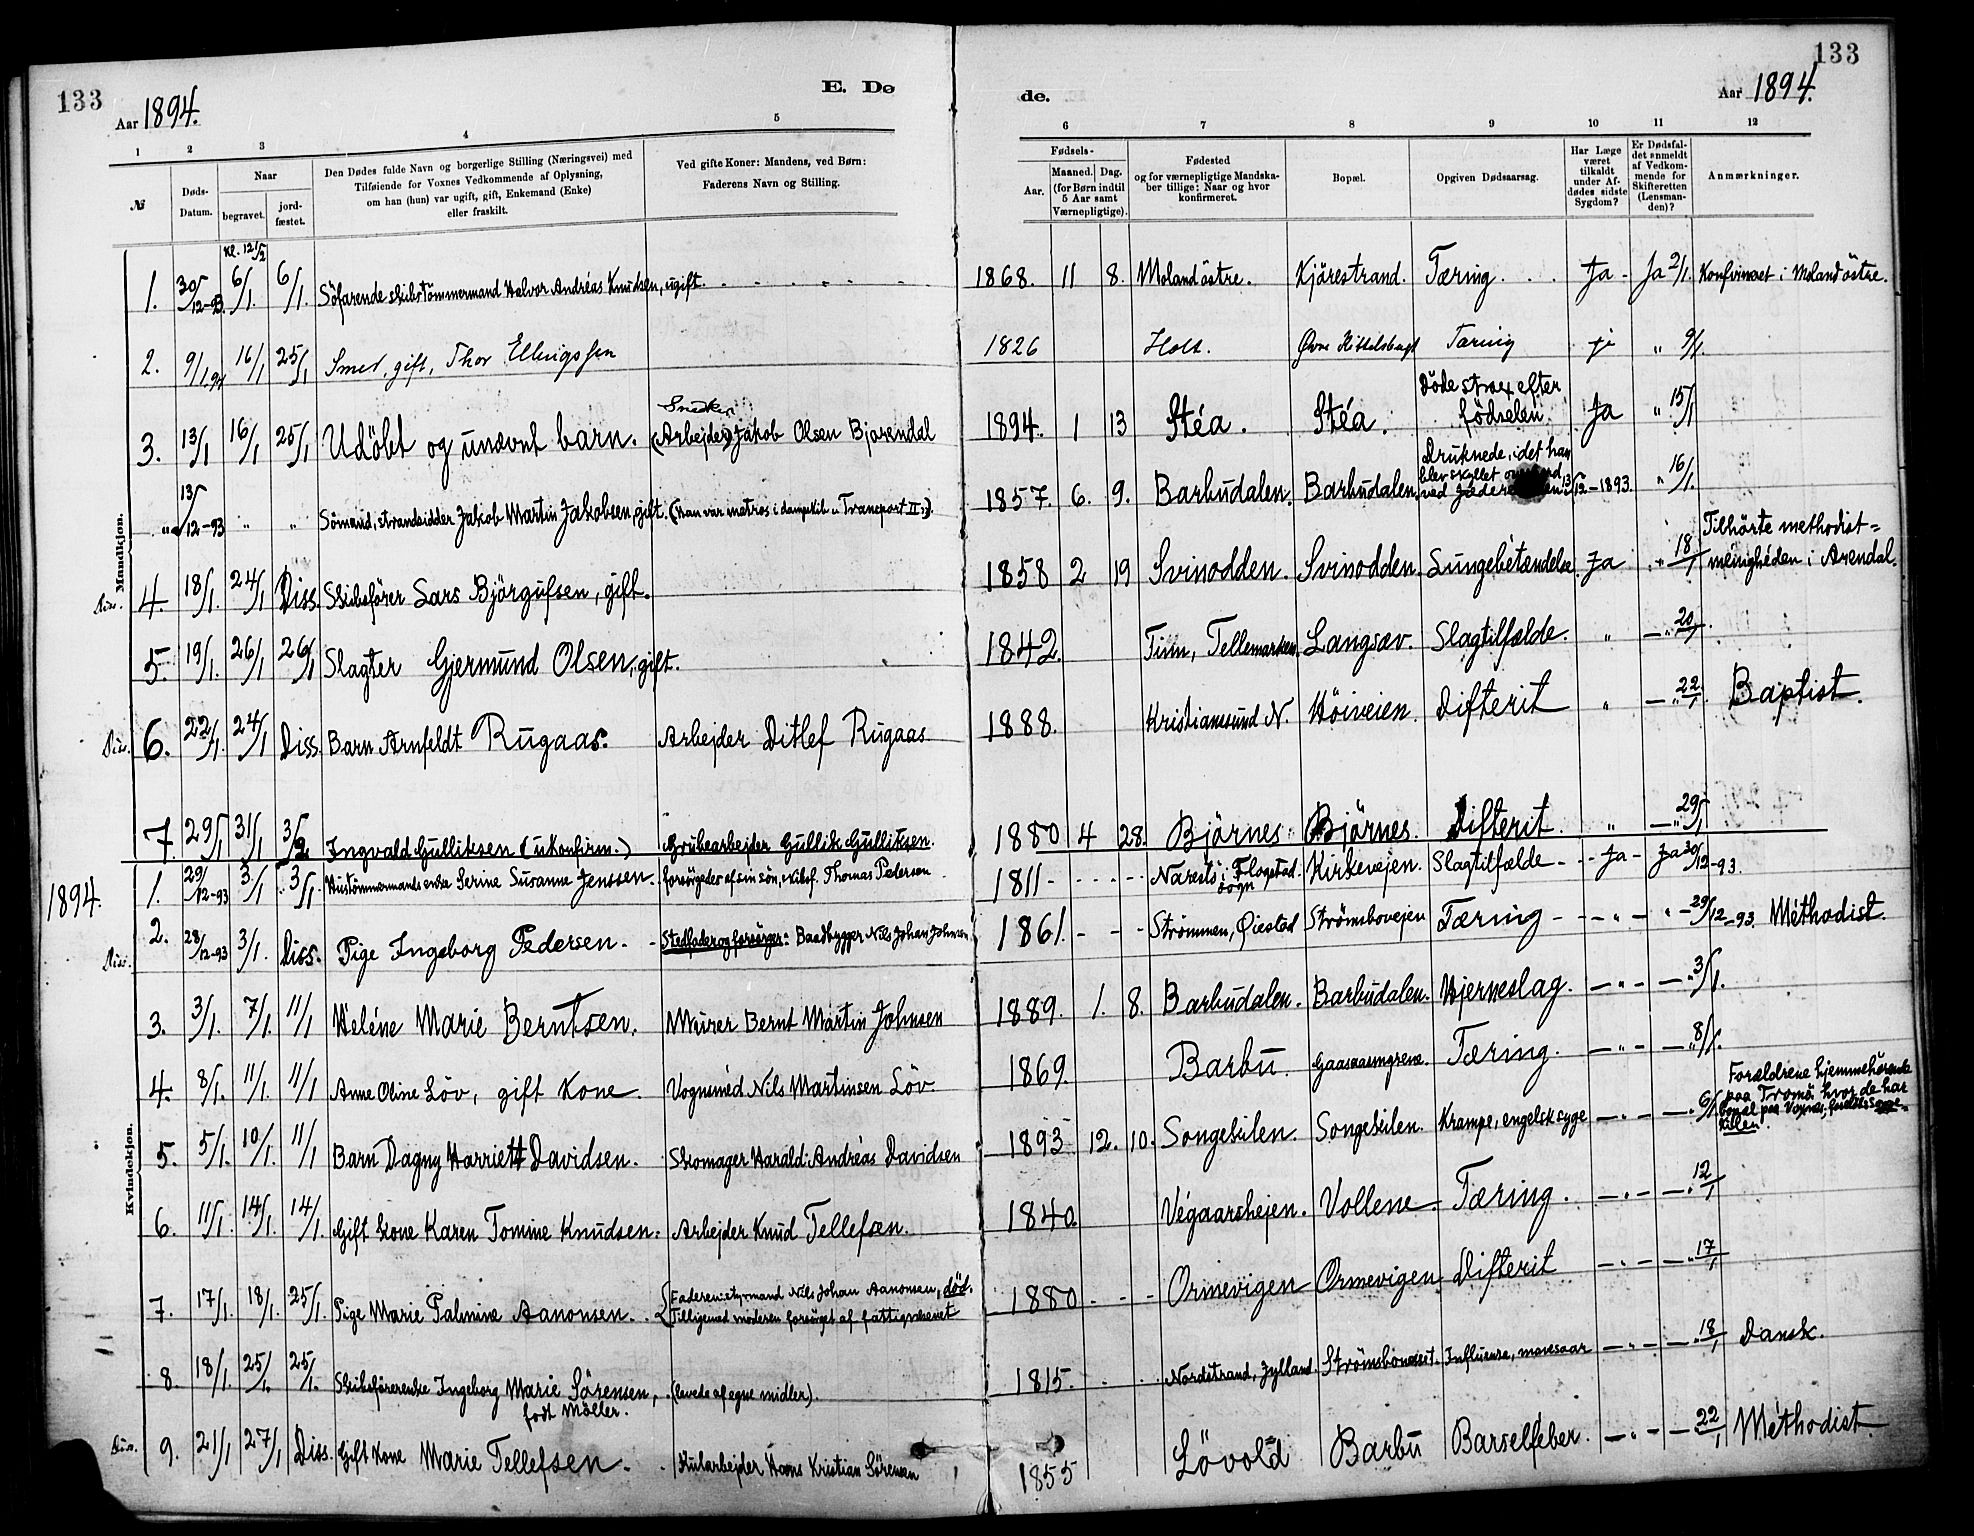 133
Aar 1894.
E. Dø
de.
Aar 1894.
133
1 2 3 4 5 6 7 8 9 10 11 12
№
Døds-Datum.
Naar
begravet.
jord-fæstet.
Den Dødes fulde Navn og borgerlige Stilling (Næringsvei) med
Tilføiende for Voxnes Vedkommende af Oplysning,
om han (hun) var ugift, gift, Enkemand (Enke)
eller fraskilt.
Ved gifte Koner: Mandens, ved Børn:
Faderens Navn og Stilling.
Fødsels-
Aar.
Maaned. Dag.
(for Børn indtil
5 Aar samt
Værnepligtige).
Fødested
og for værnepligtige Mandska-
ber tillige: Naar og hvor
konfirmeret.
Bopæl.
Opgiven Dødsaarsag.
Har Læge
været
tilkaldt
under Af-
dødes sidste
Sygdom?
Er Dødsfal-
det anmeldt
af Vedkom-
mende for
Skifteretten
(Lensman-
den)?
Anmærkninger.
Mandkjøn.
Kl. 12 1/2
1. 30/12-93. 6/1. 6/1. Söfarende skibstömmermand Halvor Andréas Knudsen, ugift. 1868. 11 8. Moland östre. Kjörestrand. Tæring. Ja - Ja 2/1. Konfirmeet i Moland östre.
2. 9/1.94 16/1 25/1 Smed, gift, Thor Ellingssen 1826 Holt. Øvre Kittelsbugt Tæring ja " 9/1.
3. 13/1 16/1 25/1 Udöbt og unævnt barn. Snedker (Arbejder) Jakob Olsen Bjorendal 1894. 1 13 Stéa. Stéa. Döde strax efter födselen. Ja " 15/1
"a 13/12-93 " " Sömand, strandsidder Jakob Martin Jakobsen, gift. (Han var matros i dampskib "Transport II"). 1857. 6. 9. Barbudalen. Barbudalen. Druknede, idet han blev skyllet ved 13/12-1893. " 16/1.
Diss. 4. 18/1. 24/1 Diss. Skibsförer Lars Björgufsen, gift. 1858 2 19 Svinodden. Svinodden. Lungebetændelse. Ja " 18/1 Tilhörte methodist-
menigheden i Arendal.
5. 19/1. 26/1 26/1 Slagter Gjermund Olsen, gift. 1842. Tinn, Tellemarken. Langsæv. Slagtilfælde. " - " 20/1.
Diss. 6. 22/1. 24/1 Diss. Barn Arnfeldt Rugaas. Arbejder Ditlef Rugaas 1888. Kristianssund N. Höiveien. Difterit " - " 22/1. Baptist.
7. 29/1 31/1 3/2. Ingvald Gulliksen (ukonfirm.) Grubearbejder Gullik Gulliksen. 1880 4 28. Björnes. Björnes. Difterit. " - " 29/1.
1894.
Kvindekjøn.
1. 29/12-93 3/1 3/1. Hustömmermands enke Serine Susanne Jenssen. forsörgedes af sin sön, skibsf. Thomas Pedersen 1811 - Narestö i Flagstad sogn Kirkevejen. Slagtilfælde - Ja - Ja 30/12-93.
Diss. 2. 28/12-93 3/1. Diss. Pige Ingeborg Pedersen. - Stedfader og forsörger: Baadbygger Nils Johan Johnsen 1861. - - - Strömmen, Øiestad Strömsbovejen Tæring - - " - " - 29/12-93. Methodist.
3. 3/1. 7/1. 11/1 Heléne Marie Berntsen. Murer Bernt Martin Johnsen 1889. 1. 8. Barbudalen. Barbudalen. Hjerneslag. - " - - " 3/1.
4. 8/1. 11/1. 11/1 Anne Oline Löv, gift Kone. Vognmed Nils Martinsen Löv 1869. Barbu. Tæring. - " - - " 8/1.
5. 5/1. 10/1. 11/1 Barn Dagny Harriett Davidsen. Skomager Harald Andréas Davidsen 1893 12. 10. Songebilen. Songebilen. Krampe, engelsk syge - " - - " 6/1 Forældrene hjemmehörende
paa Tromö, hvor de har
6. 11/1. 14/1. 14/1. Gift Kone Karen Tomine Knudsen. Arbejder Knud Tellefsen. 1840. Végaarshejen. Vollene - Tæring. - " - - " 12/1
7. 17/1. 18/1. 25/1. Pige Marie Palmine Aanonsen. Faderen: styrmand Nils Johan Aanonsen, död.
Tilligemed moderen forsörget af fattigvæsenet 1880 - - - Ormevigen Ormevigen Difterit - " - - " 17/1
8. 18/1. 25/1. 25/1. Skibsförerenke Ingeborg Marie Sörensen,
född Möller. (levede af egne midler). 1815. Nordstrand, Jylland. Influenza, mavesaar - " - - " 18/1 Dansk.
Diss. 9. 21/1 27/1 Diss. Gift Kone Marie Tellefsen. Kularbejder Hans Kristian Sörensen 1855 Lövold Barbu Barselfeber. - " - - 22/1 Methodist.